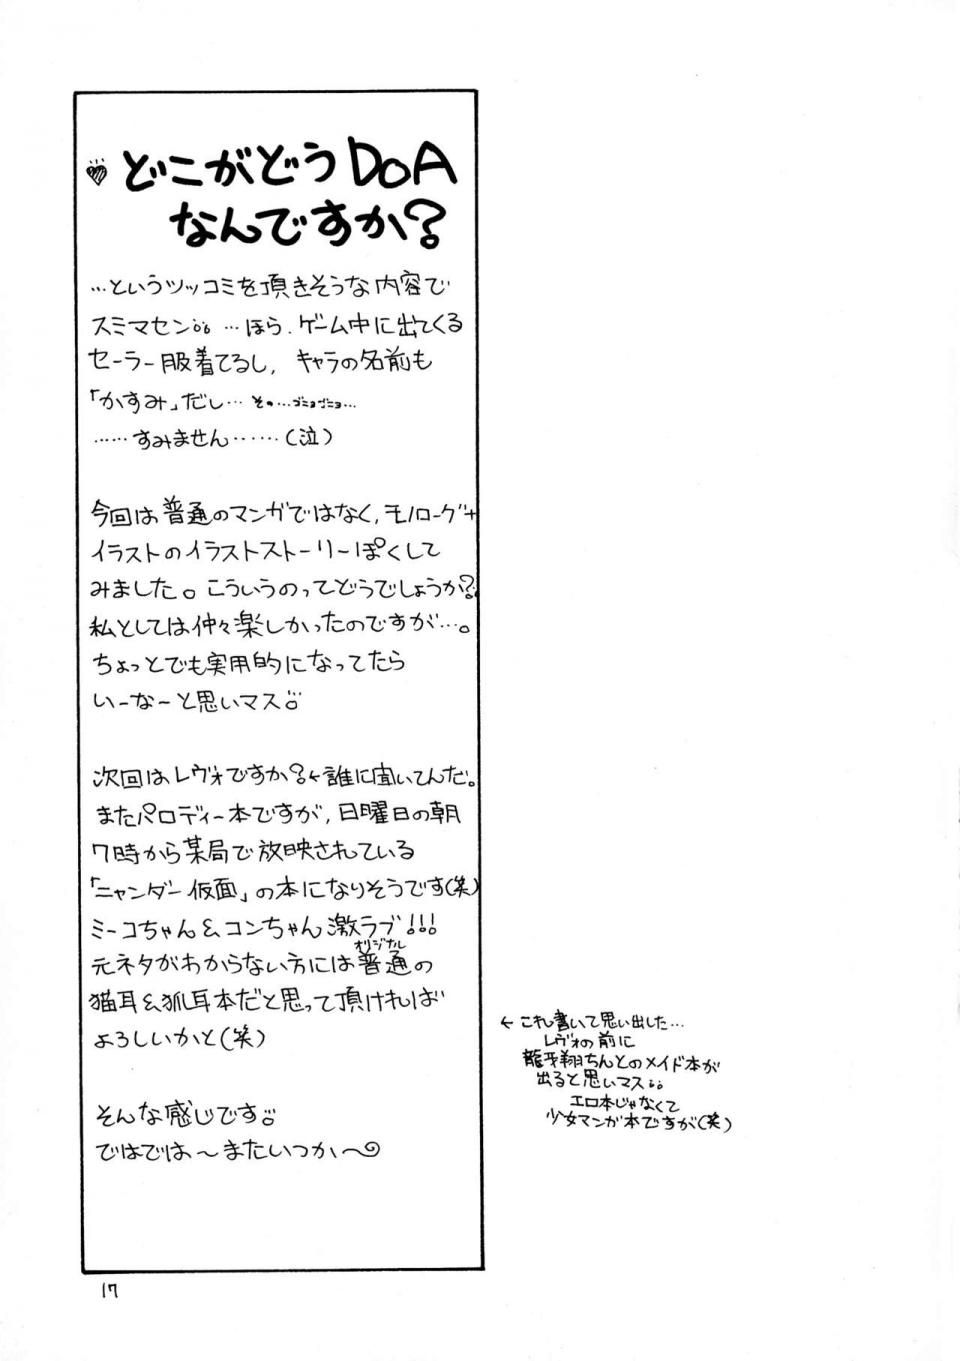 どこがどうDOA
なんですか?
…というツッコミを頂きそうな内容で
スミマセン。。…ほら、ゲーム中に出てくる
セーラー服着てるし、キャラの名前も
「かすみ」だし… その…ゴニョゴニョ…
……すみません……(泣)
今回は普通のマンガではなく、モノローグ+
イラストのイラストストーリーぽくして
みました。こういうのってどうでしょうか?
私としては仲々楽しかったのですが…。
ちょっとでも実用的になってたら
いーなーと思いマス。
次回はレヴォですか?←誰に聞いてんだ。
またパロディー本ですが、日曜日の朝
7時から某局で放映されている
「ニャンダー仮面」の本になりそうです(笑)
ミーコちゃん&コンちゃん激ラブ!!!
オリジナル
元ネタがわからない方には普通の
猫耳&狐耳本だと思って頂ければ
よろしいかと(笑)
そんな感じです。
ではでは〜またいつか〜
←これ書いて思い出した…
レヴォの前に
龍牙翔ちんとのメイド本が
出ると思いマス。。
エロ本じゃなくて
少女マンガ本ですが(笑)
17